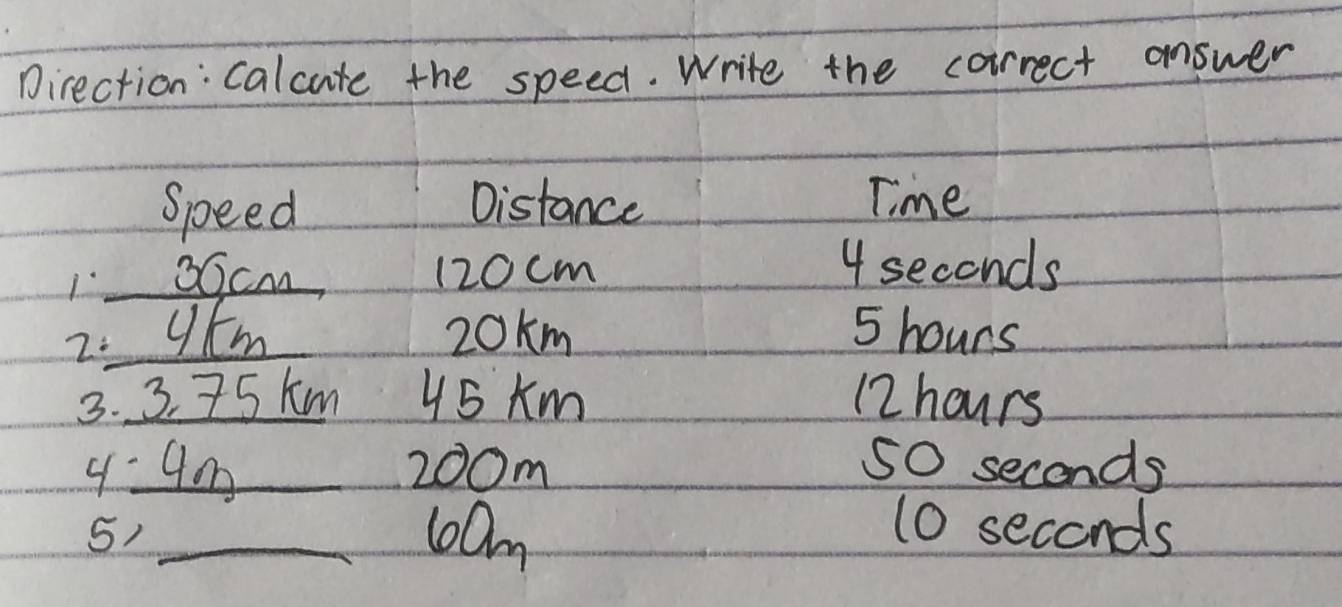 Direction: Calcute the speed. Write the correct answer
Speed Distance Time
1. 30cm 120 cm 4 seconds
2. 4km 20 km 5 hours
3. 3.75 km 45 km 12 hours
4. 4m 200m 50 seconds
5, 60m 10 seconds